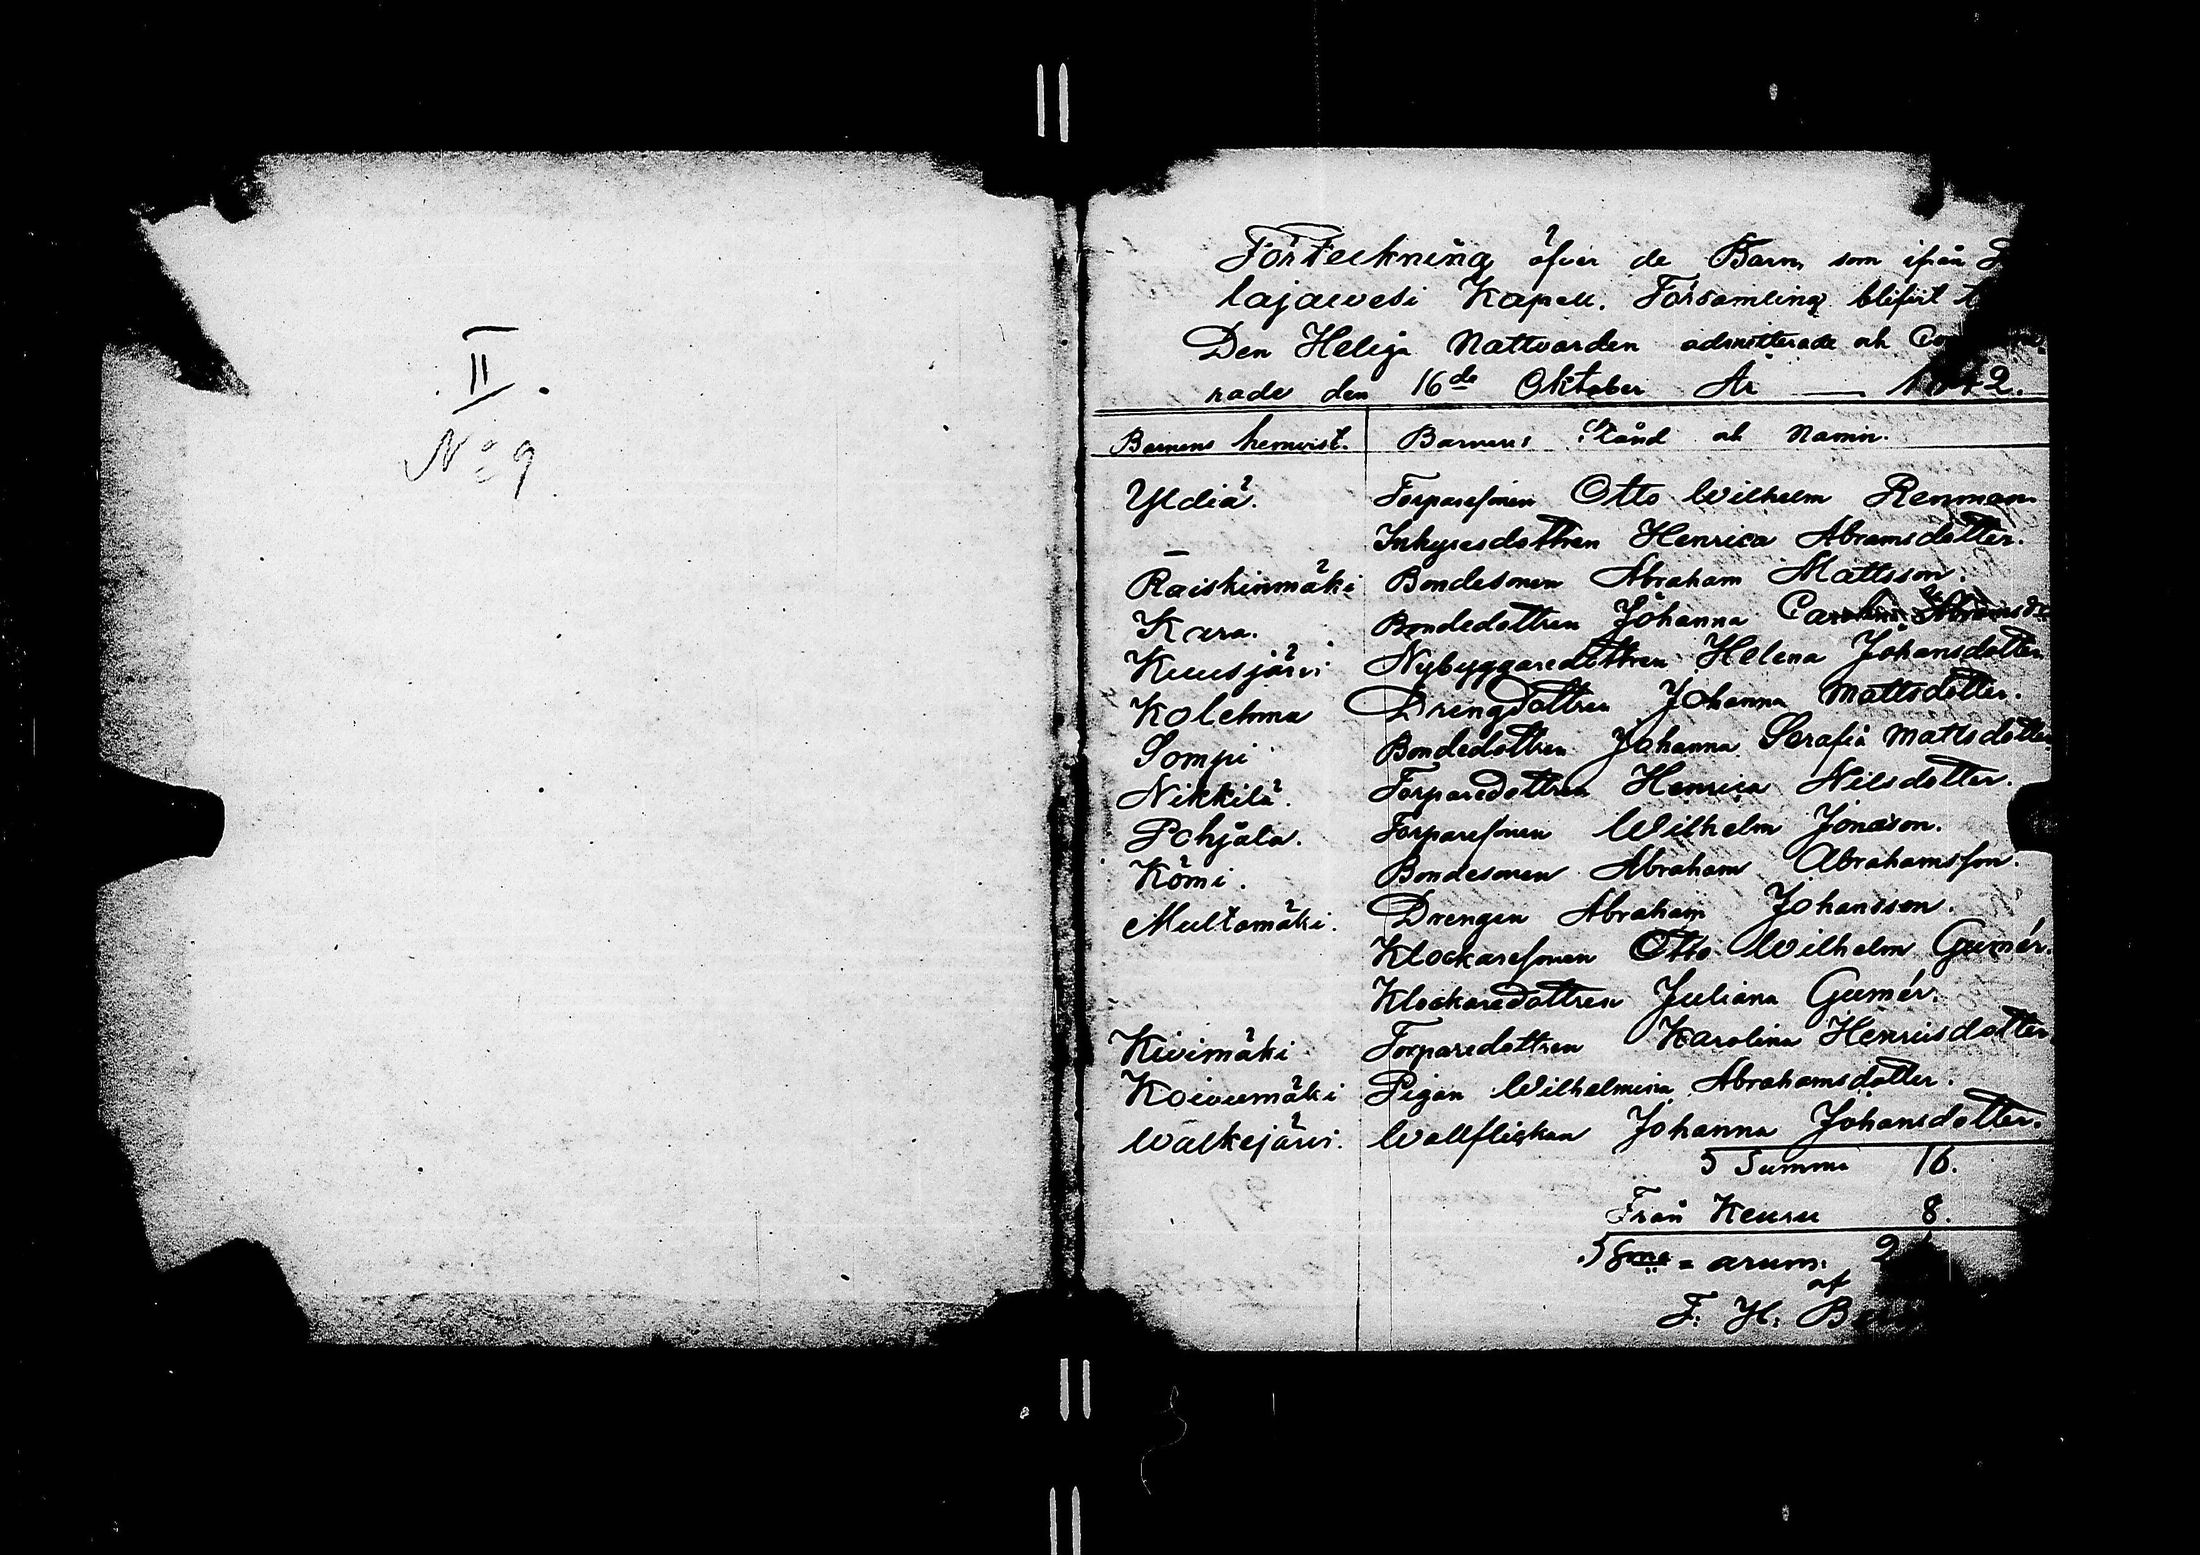 II
No 9
Förteckning öfver de Barn som ifrån
lajawesi Kapell. Församling blifvit
Den Heliga Nattvarden admitterade och
rade den 16de Oktober År — 1842.
Barnens hemvist. Barnens Stånd och Namn.
Yldiä. Torparesonen Otto Wilhelm Renman
— Inhysesdottren Henrica Abramsdotter.
Raiskinmäki Bondesonen Abraham Mattsson.
Kara. Bondedottren Johanna Carolina Abramsdr
Kuusjärvi Nybyggaredottren Helena Johansdotter
Kolehma Drengdottren Johanna Mattsdotter.
Sompi Bondedottren Johanna Serafia Mattsdotter
Nikkilä. Torparedottren Henrica Nilsdotter.
Pohjala. Torparesonen Wilhelm Jonasson.
Kömi. Bondesonen Abraham Abrahamsson.
Multamäki. Drengen Abraham Johansson.
Klockaresonen Otto Wilhelm Gumér.
Klockaredottren Juliana Gumér.
Kivimäki Torparedottren Karolina Henricsdotter
Koivumäki Pigan Wilhelmina Abrahamsdotter.
Walkejärvi. Wallflickan Johanna Johansdotter.
Summa 16.
Från Keuru 8.
arum. 2
af
F. H.